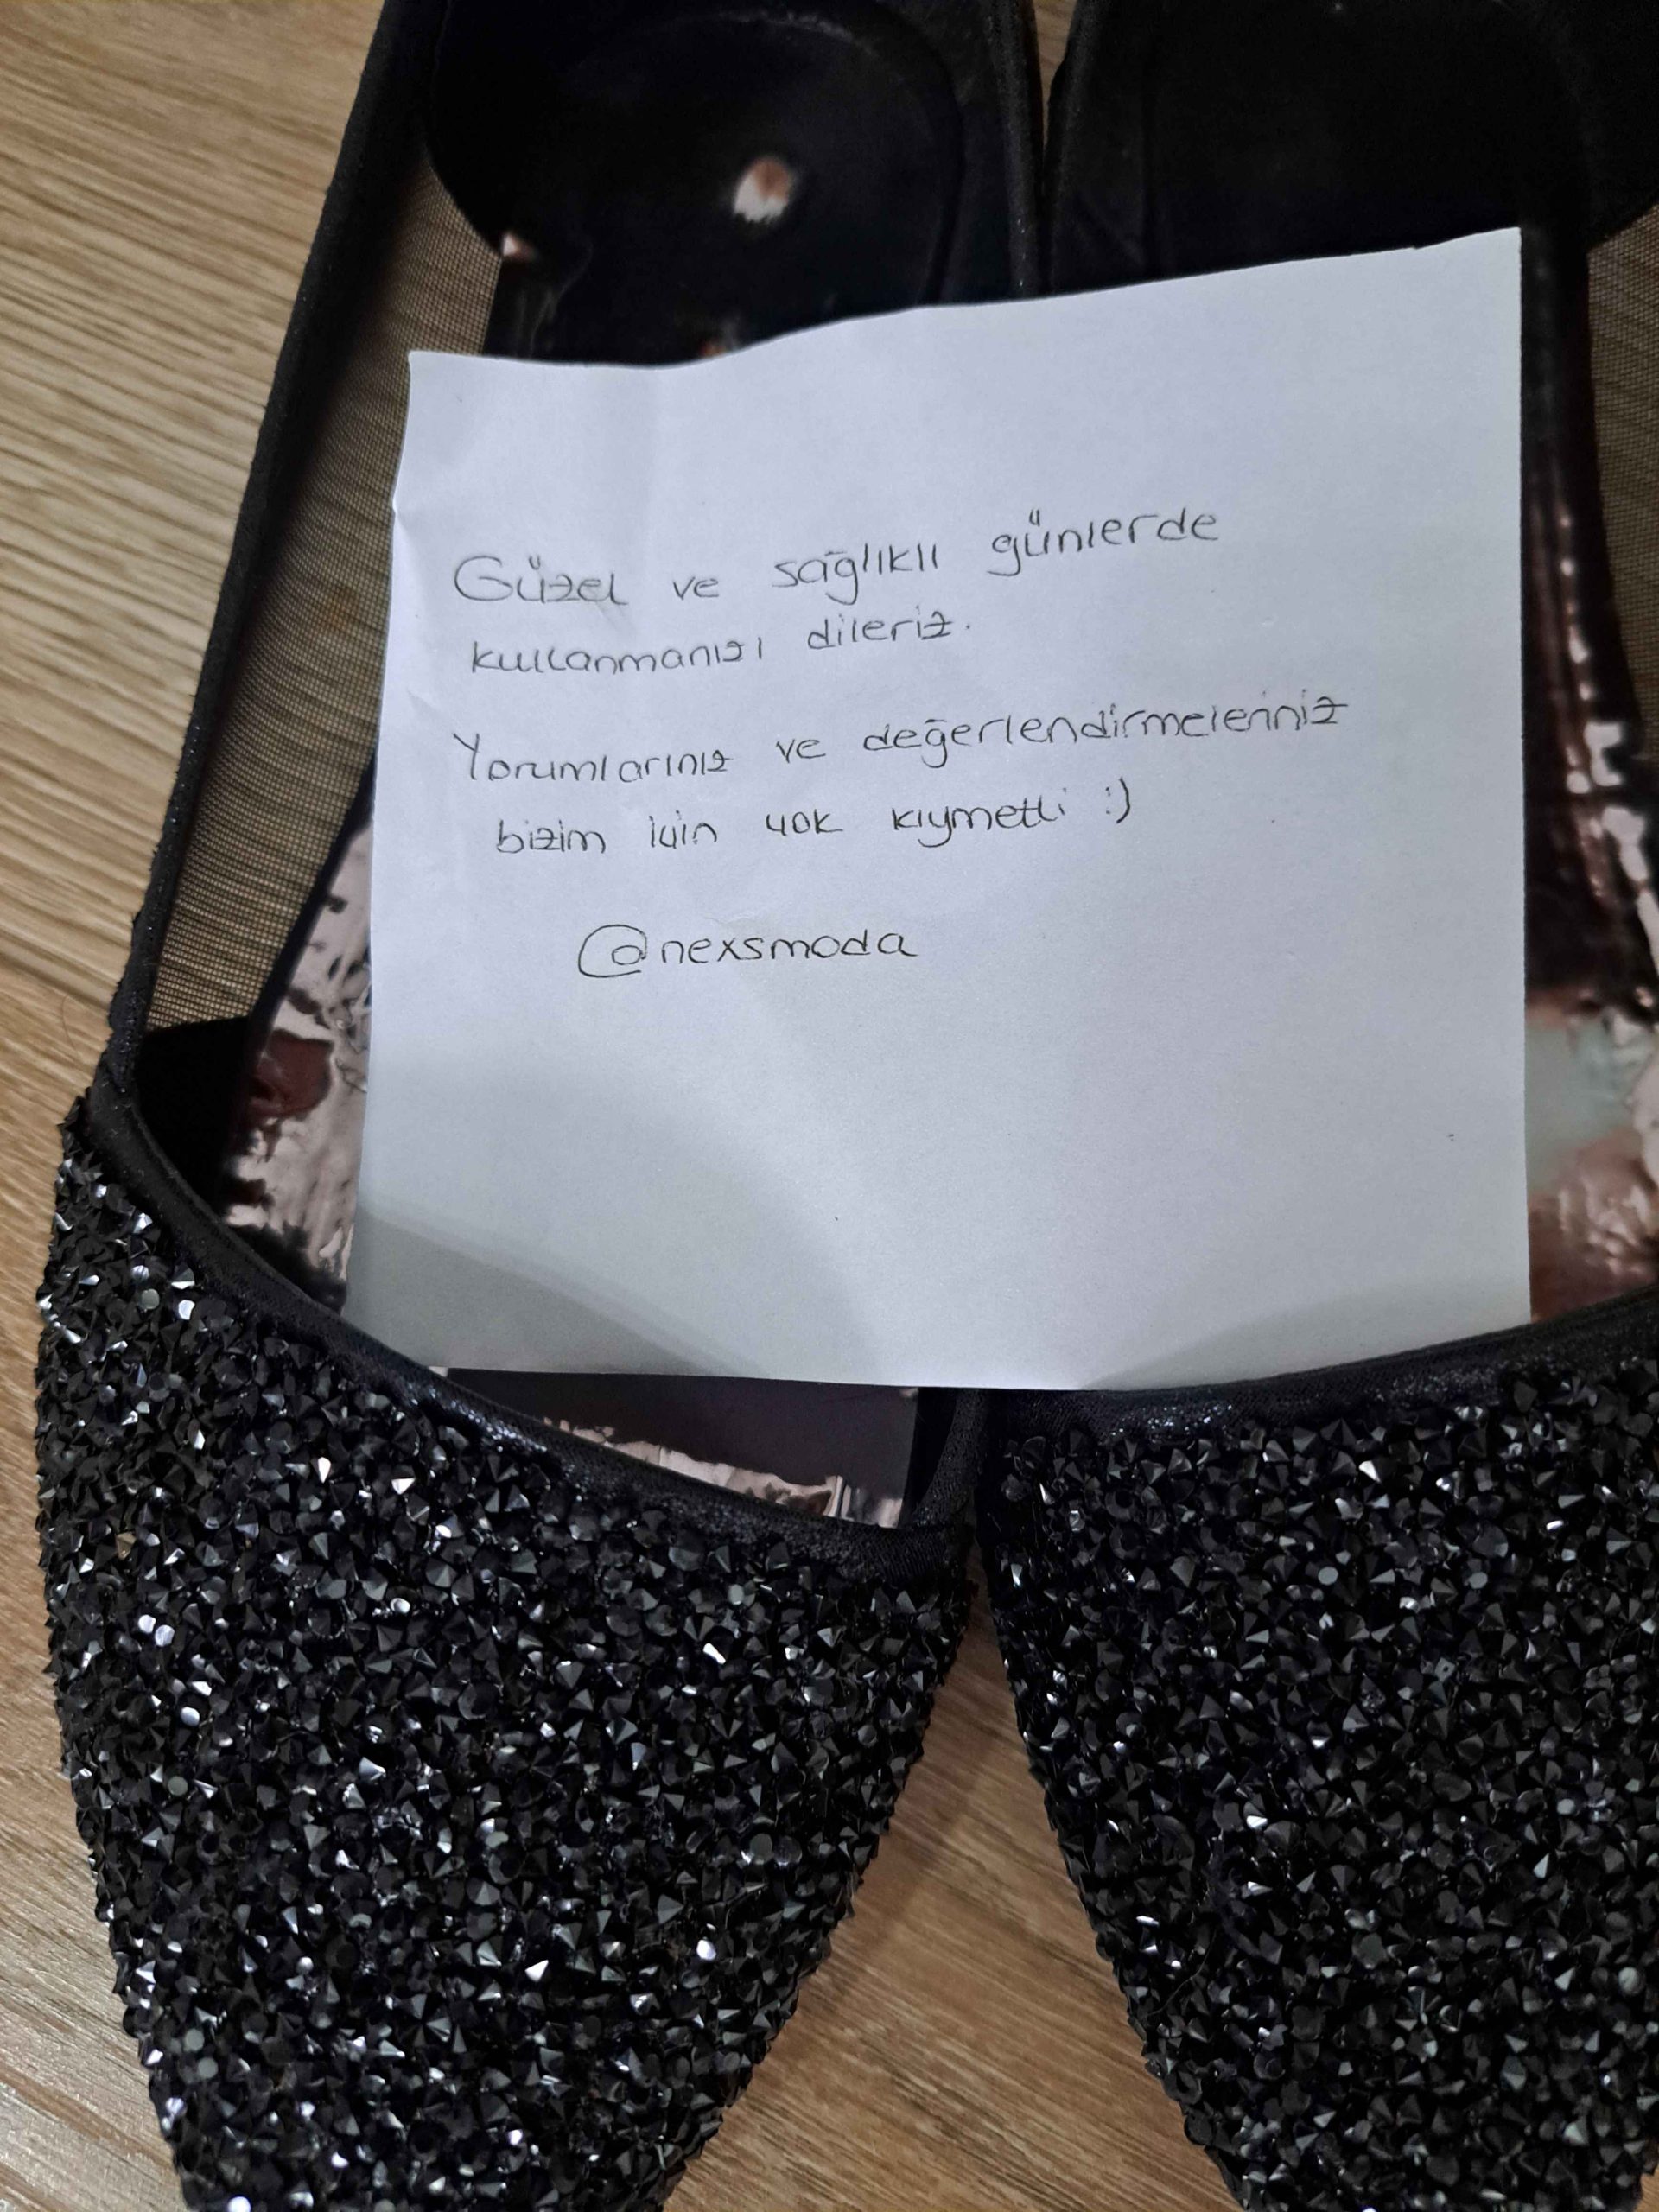 Güzel ve sağlıklı günlerde
kullanmanızı dileriz.
Yorumlarınız ve değerlendirmeleriniz
bizim için çok kıymetli :)
@nexsmoda